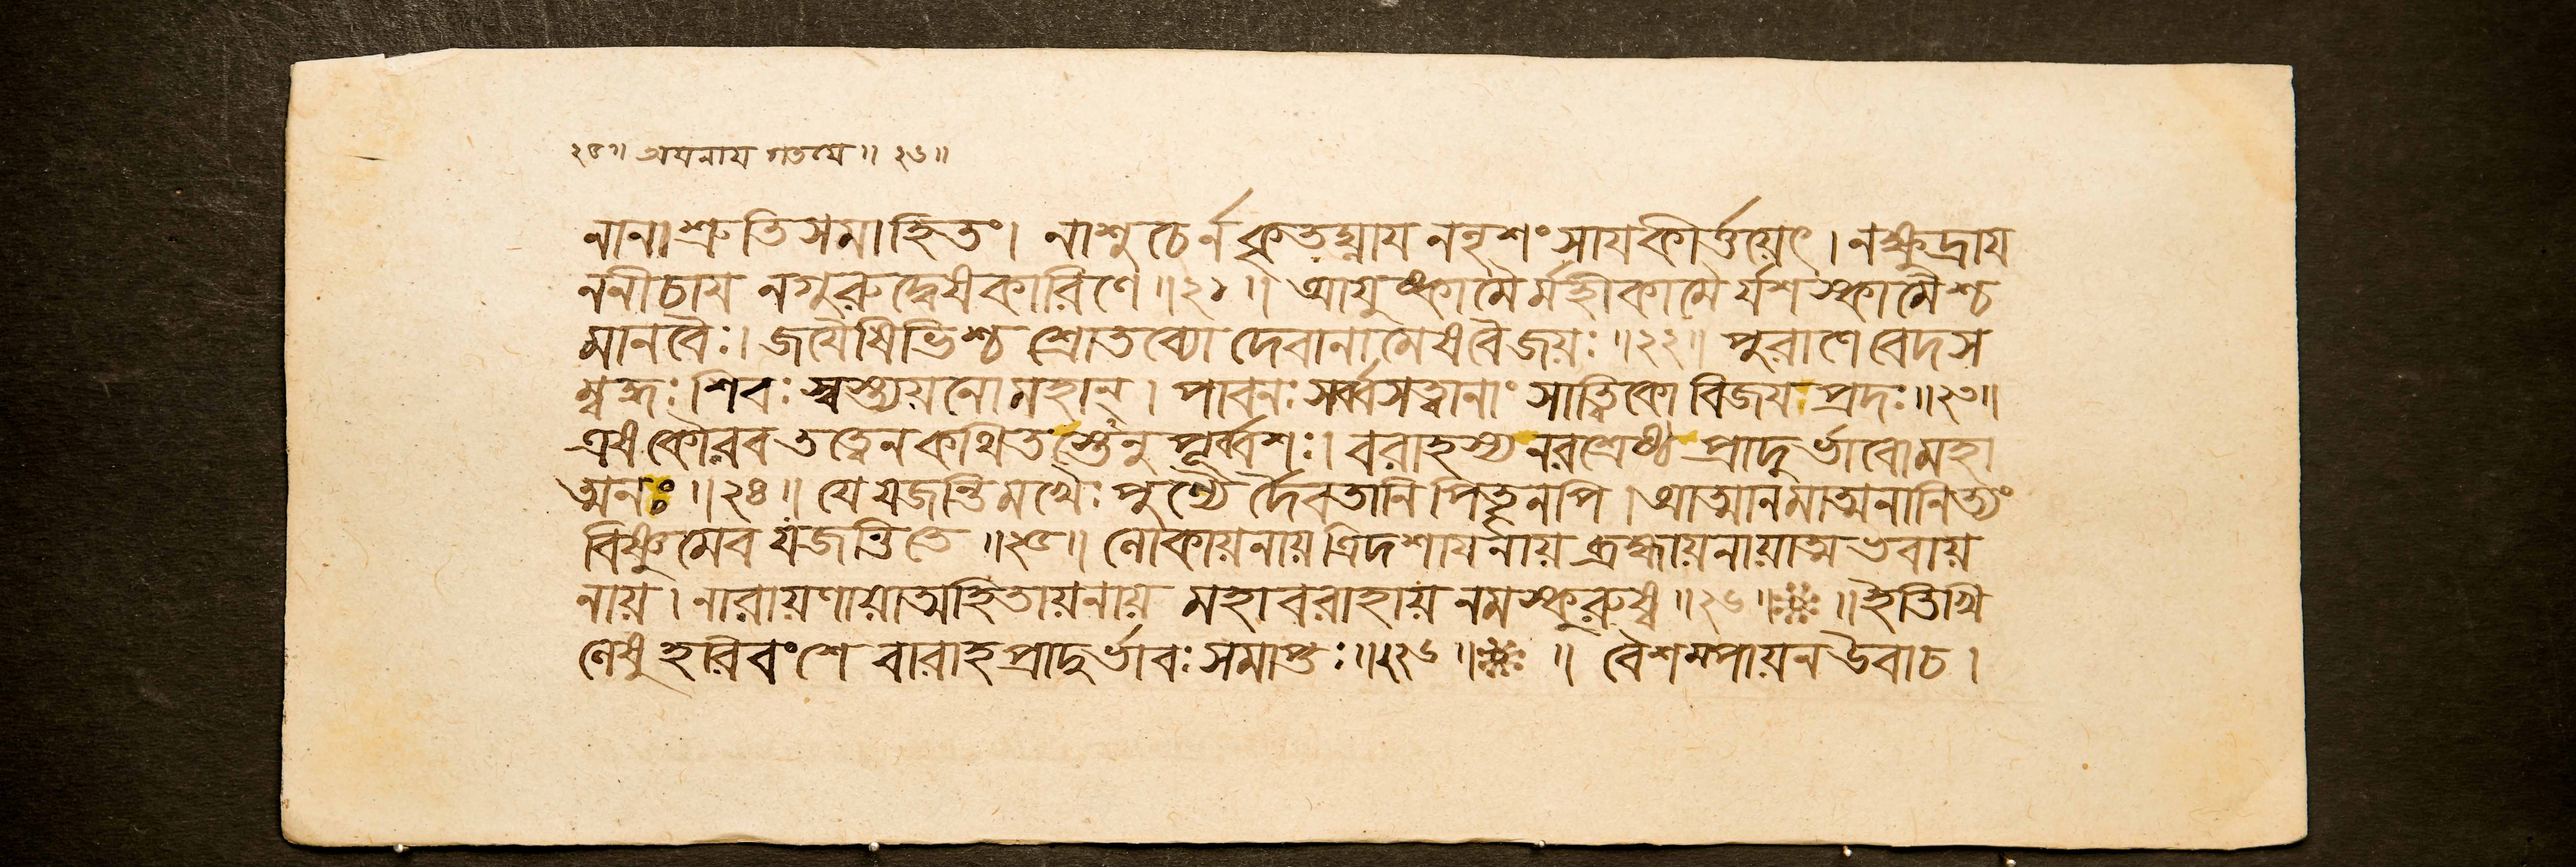 ২৫॥ অয়নায় গতয়ে॥ ২৬॥
নানাশ্রুতিসমাহিতং। নাশুচের্ন কৃতঘ্নায় ননৃশংসায়কীর্ত্তয়েৎ। নক্ষুদ্রায়
ননীচায় নগুরুদ্বেষকারিণে॥২১॥ আয়ুষ্কামৈর্মহীকামৈর্যশস্কামৈশ্চ
মানবৈঃ। জয়ৈষিভিশ্চ শ্রোতব্যো দেবানামেষবৈজয়ঃ॥২২॥ পুরাণে বেদস
ম্বদ্ধঃ শিবঃ স্বস্ত্যয়নোমহান্। পাবনঃ সর্ব্বসত্বানাং সাত্ত্বিকো বিজয়প্রদঃ॥২৩॥
এষকৌরবতত্বেনকথিতস্তেনুপূর্ব্বশঃ। বরাহস্য নরশ্রেষ্ঠ প্রাদুর্ভাবোমহা
ত্মনঃ॥২৪॥ যে যজন্তিমখৈঃ পুণ্যৈর্দৈবতানি পিতৄনপি। আত্মানমাত্মনানিত্যং
বিষ্ণুমেব যজন্তিতে॥২৫॥ লোকায়নায় ত্রিদশায়নায় ব্রহ্মায়নায়াত্মভবায়
নায়। নারায়ণায়াত্মহিতায়নায় মহাবরাহায় নমস্কুরুষ্ব॥২৬॥ ॥ইতিখি
লেষু হরিবংশে বারাহপ্রাদুর্ভাবঃ সমাপ্তঃ॥২২৬॥ ॥ বৈশম্পায়ন উবাচ।